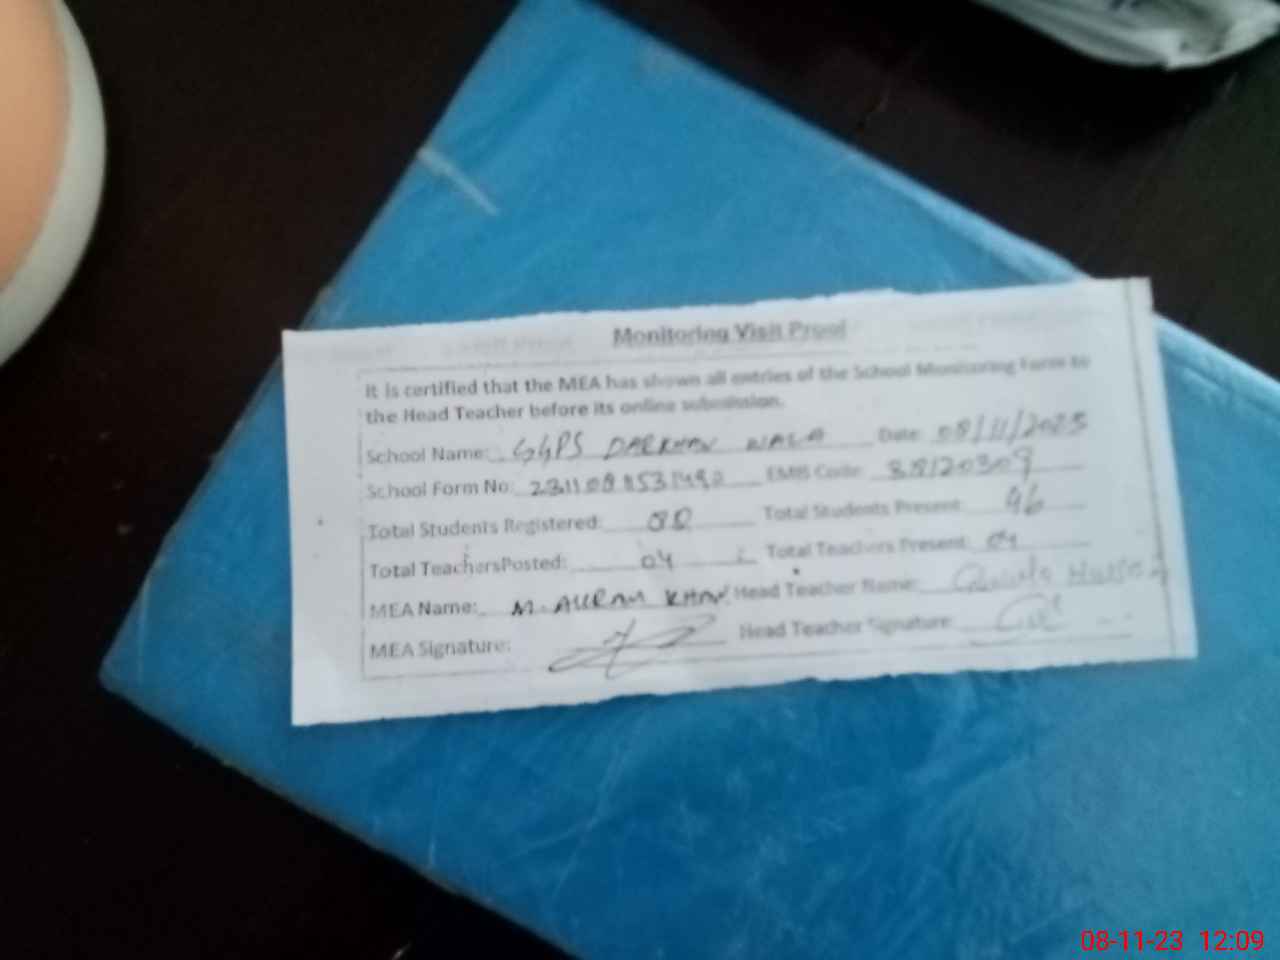 Monitoring Visit Proof
It is certified that the MEA has shown all entries of the School Monitoring Form to
the Head Teacher before its online submission.
School Name: GGPS DARKHAN WALA Date: 08/11/2023
School Form No: EMIS Code: 38120309
Total Students Registered: Total Students Present:
Total TeachersPosted: 04 Total Teachers Present: 04
MEA Name: M. AKRAM KHAN Head Teacher Name:
MEA Signature: Head Teacher Signature:
08-11-23 12:09